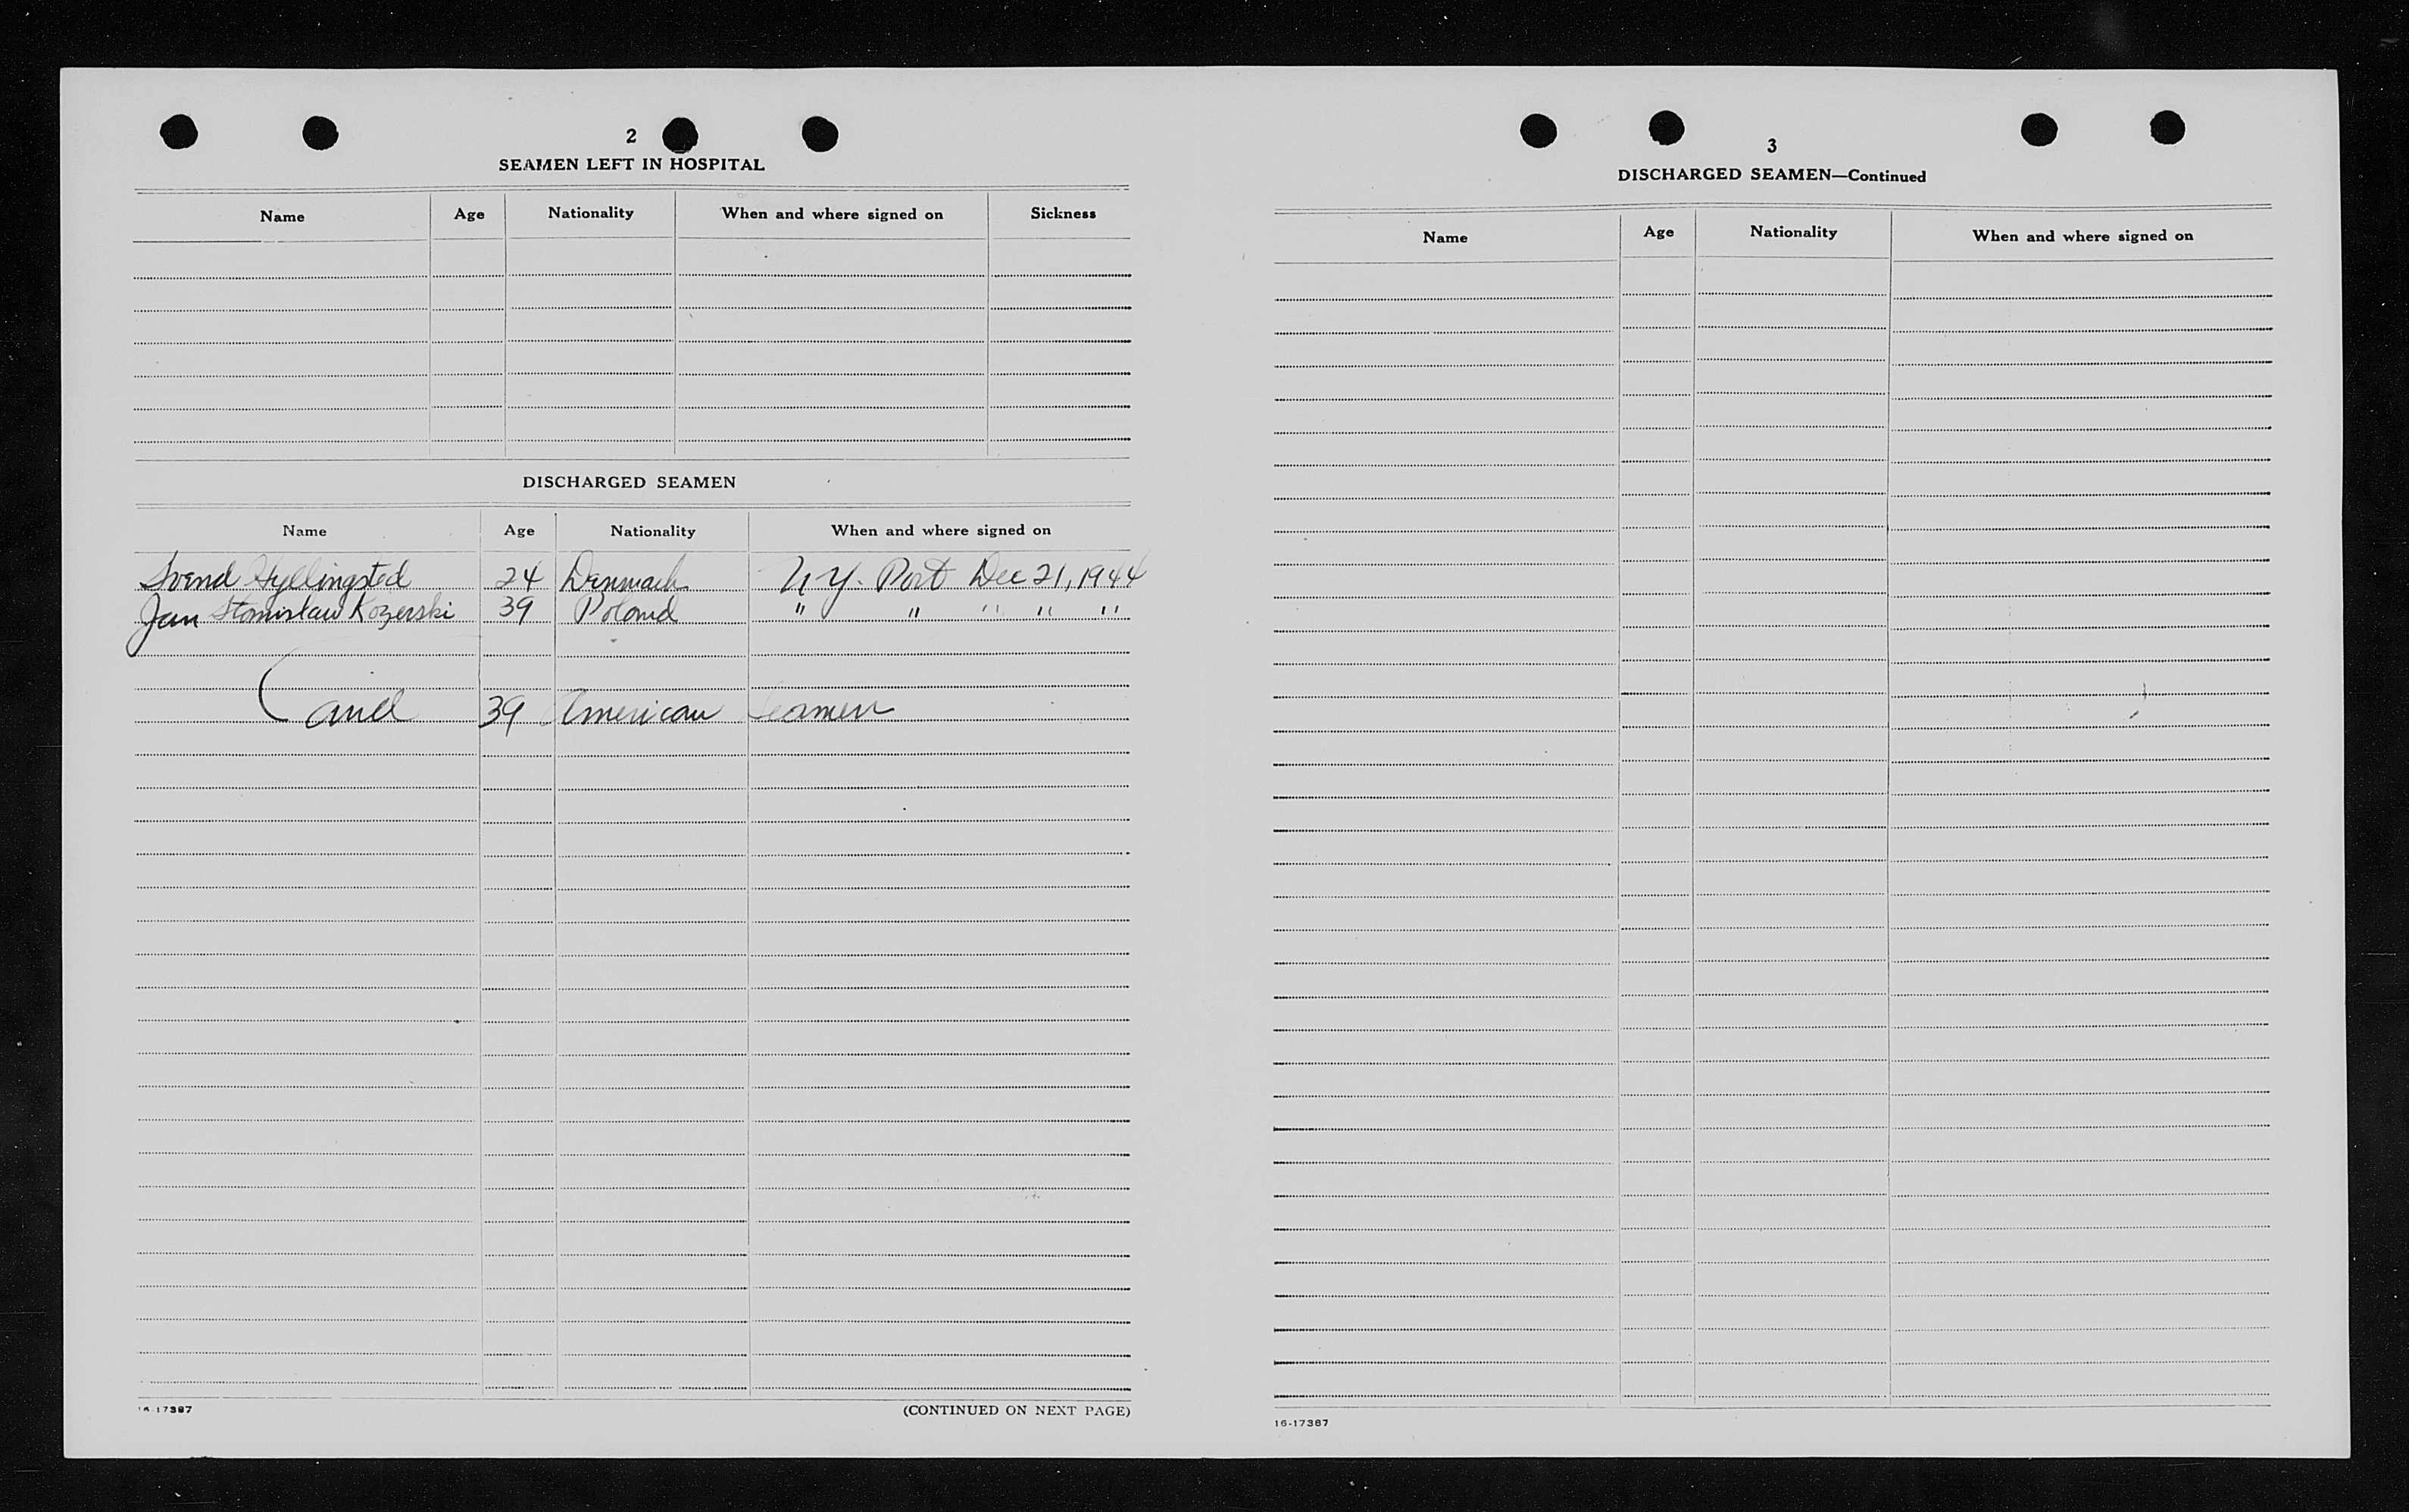 2
SEAMEN LEFT IN HOSPITAL
Name Age Nationality When and where signed on Sickness
DISCHARGED SEAMEN
Name Age Nationality When and where signed on
Svend Hyllingsted 24 Denmark N.Y. Port Dec 21, 1944
Jan Stanislaw Kozerski 39 Poland " " " " "
and 39 American Seamen
16-17387 (CONTINUED ON NEXT PAGE)
3
DISCHARGED SEAMEN—Continued
Name Age Nationality When and where signed on
16-17387